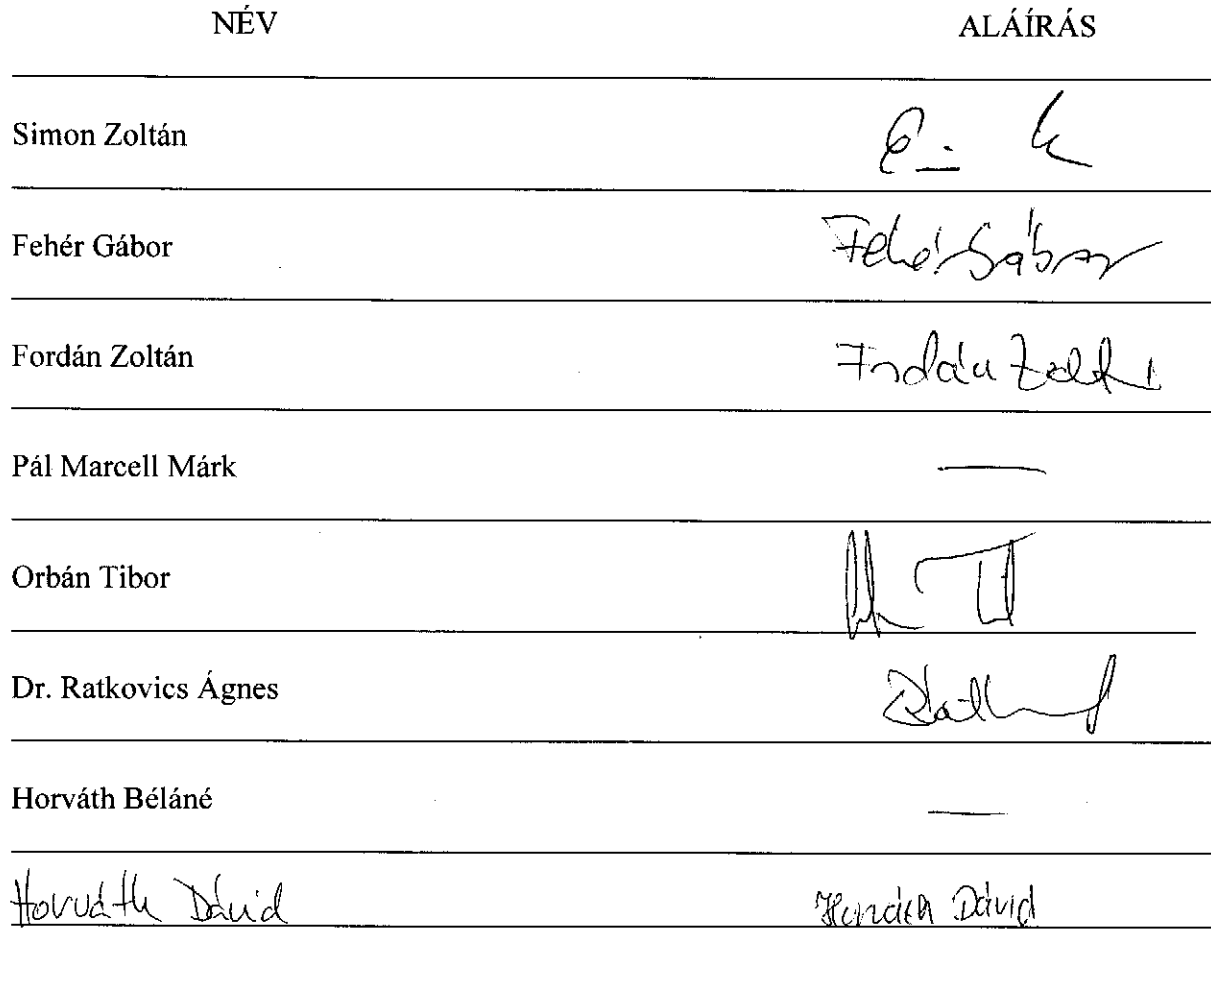 NÉV ALÁÍRÁS
Simon Zoltán
Fehér Gábor Fehér Gábor
Fordán Zoltán Fordán Zoltán
Pál Marcell Márk —
Orbán Tibor
Dr. Ratkovics Ágnes
Horváth Béláné —
Horváth Dávid Horváth Dávid